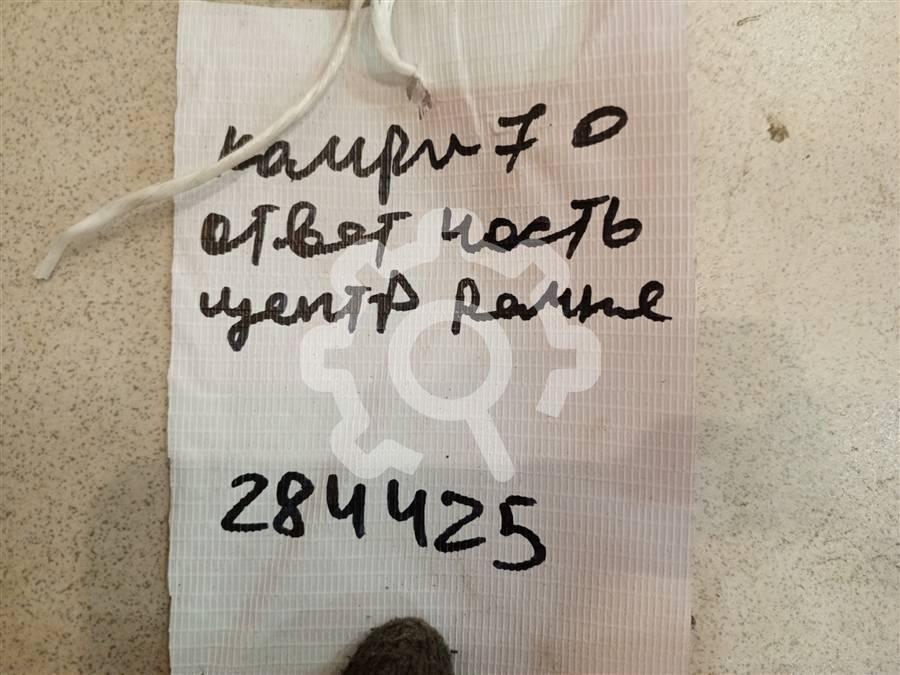 камри 70
ответ часть
центр ремне
284425